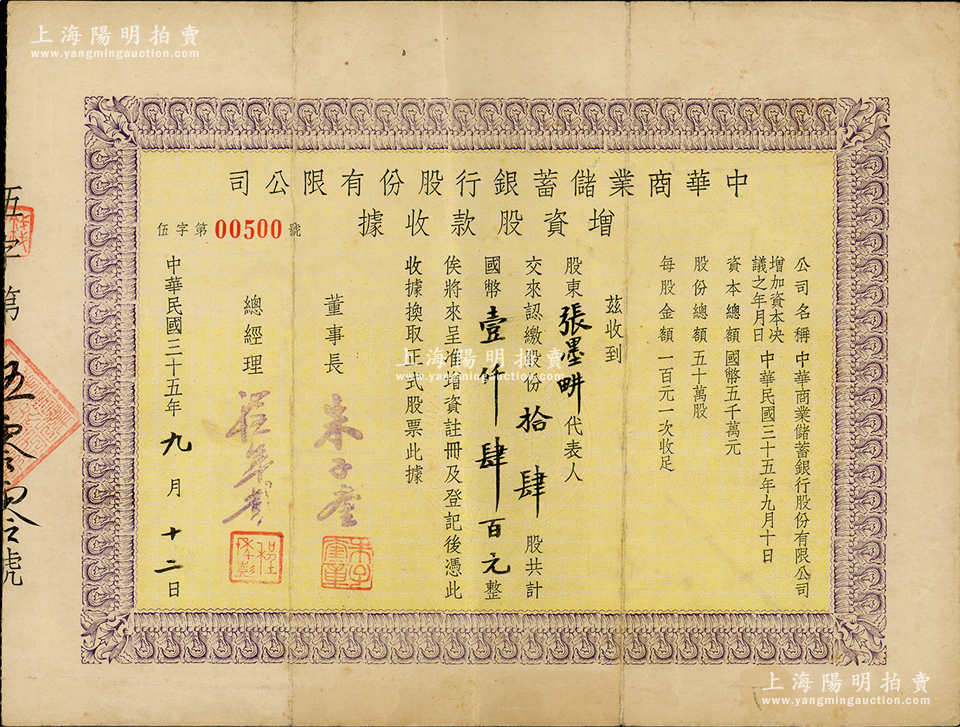 上海陽明拍賣
www.yangmingauction.com
中華商業儲蓄銀行股份有限公司
增資股款收據
伍字第00500號
公司名稱 中華商業儲蓄銀行股份有限公司
增加資本決議之年月日 中華民國三十五年九月十日
資本總額 國幣五千萬元
股份總額 五十萬股
每股金額 一百元一次收足
茲收到
股東張墨畊代表人
交來認繳股份拾肆股共計
國幣壹仟肆百元整
俟將來呈准增資註冊及登記後憑此
收據換取正式股票此據
董事長 朱子奎
總經理
中華民國三十五年九月十二日
伍字第五零零號
上海陽明拍賣
www.yangmingauction.com
上海陽明拍賣
www.yangmingauction.com